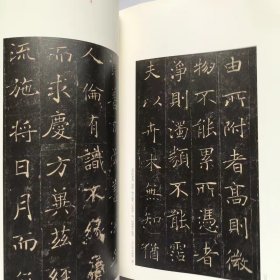 由所附者高則微
物不能累所憑者
淨則濁類不能霑
夫以卉木無知猶
人倫有識不緣慶
而求慶方冀茲經
流施将日月而